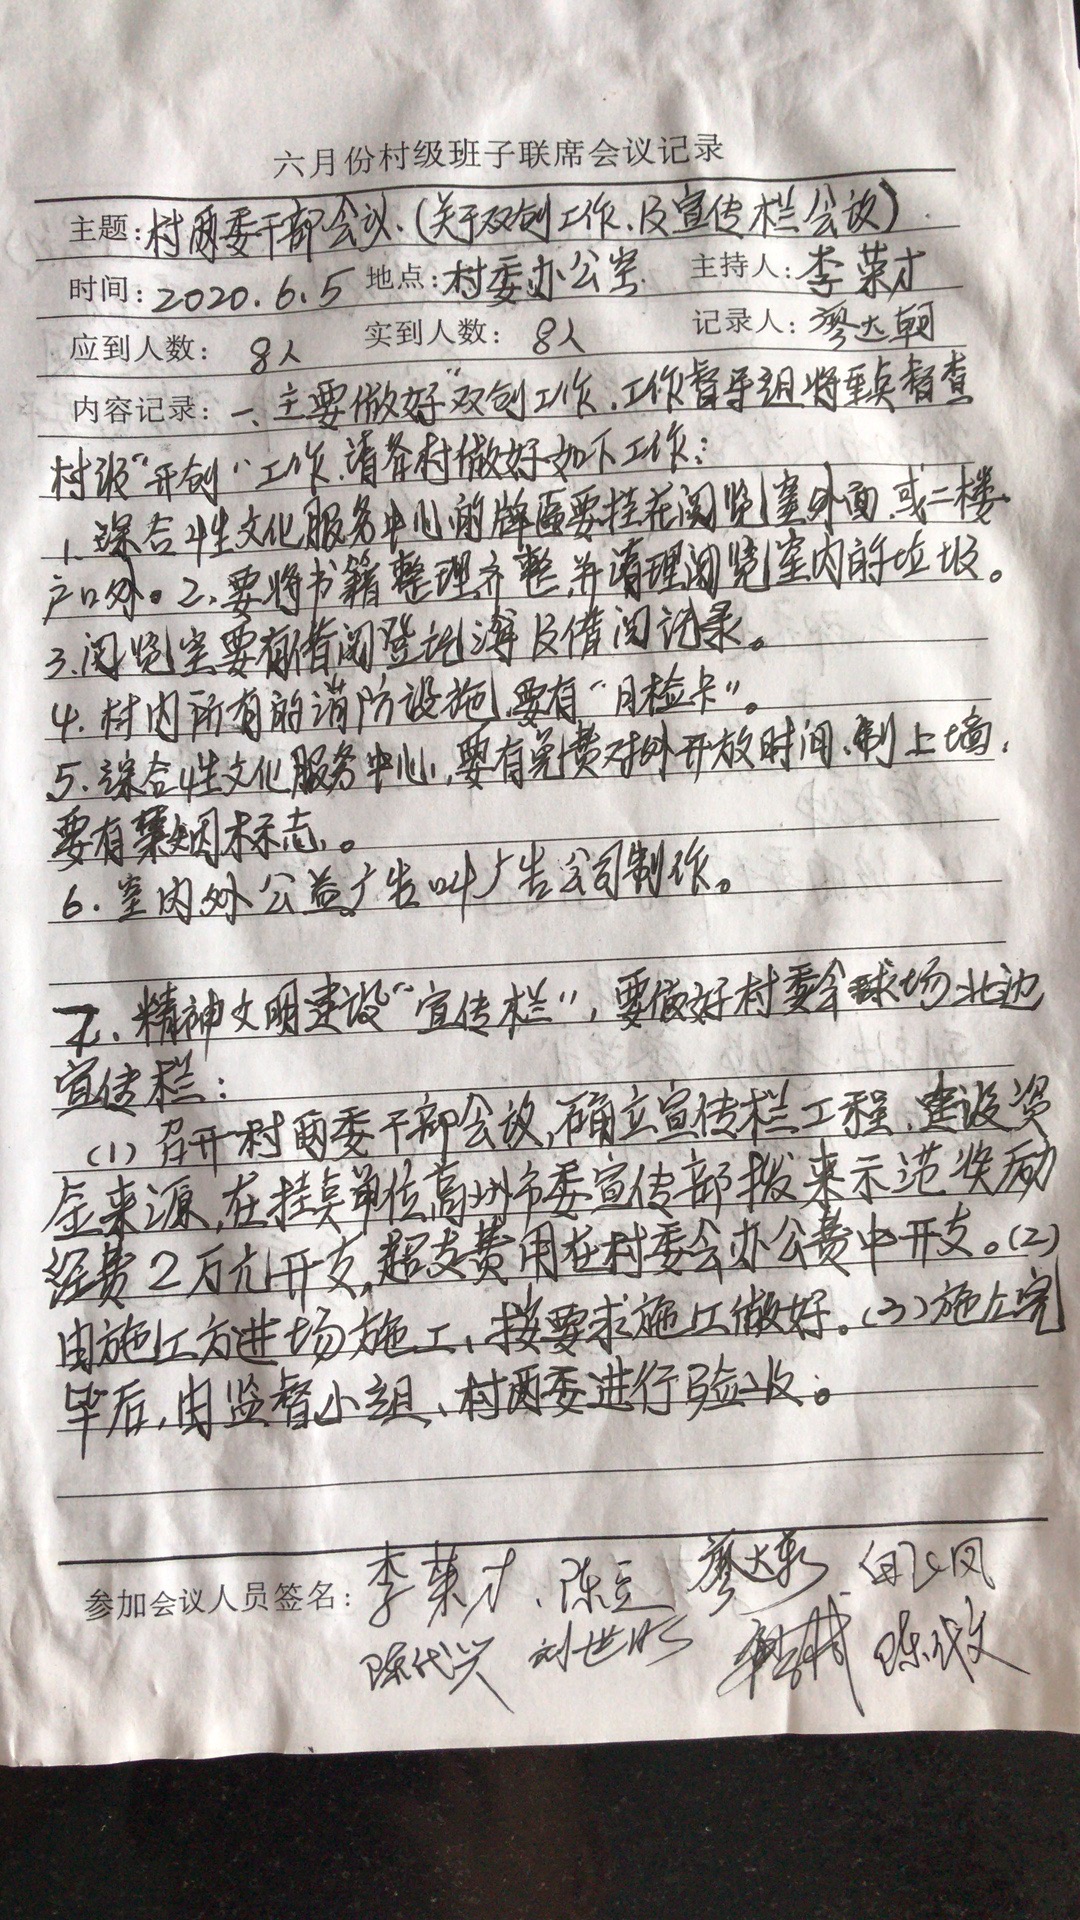 六月份村级班子联席会议记录
主题:村两委干部会议、(关于双创工作、及宣传栏会议)
时间:2020.6.5 地点:村委办公室 主持人:李荣才
应到人数: 8人 实到人数: 8人 记录人:廖达朝
内容记录:一、主要做好"双创工作、工作督导组将重点督查
村级"开创"工作,请各村做好如下工作:
1.综合性文化服务中心的牌匾要挂在阅览室外面,或二楼
户口外。2、要将书籍整理齐整,并清理阅览室内的垃圾。
3.阅览室要有借阅登记簿及借阅记录。
4.村内所有的消防设施,要有"月检卡"。
5.综合性文化服务中心,要有免费对外开放时间、制上墙,
要有禁烟标志。
6.室内外公益广告叫广告公司制作。
二、精神文明建设"宣传栏",要做好村委会球场北边
宣传栏:
(1)召开村两委干部会议,确立宣传栏工程,建设资
金来源,在挂点单位高州市委宣传部拨来示范奖励
经费2万元开支,超支费用在村委会办公费中开支。(2)
由施工方进场施工,按要求施工做好。(3)施工完
毕后,由监督小组、村两委进行验收。
参加会议人员签名:李荣才、陈立 廖达朝
陈代兴 刘世明 陈代文